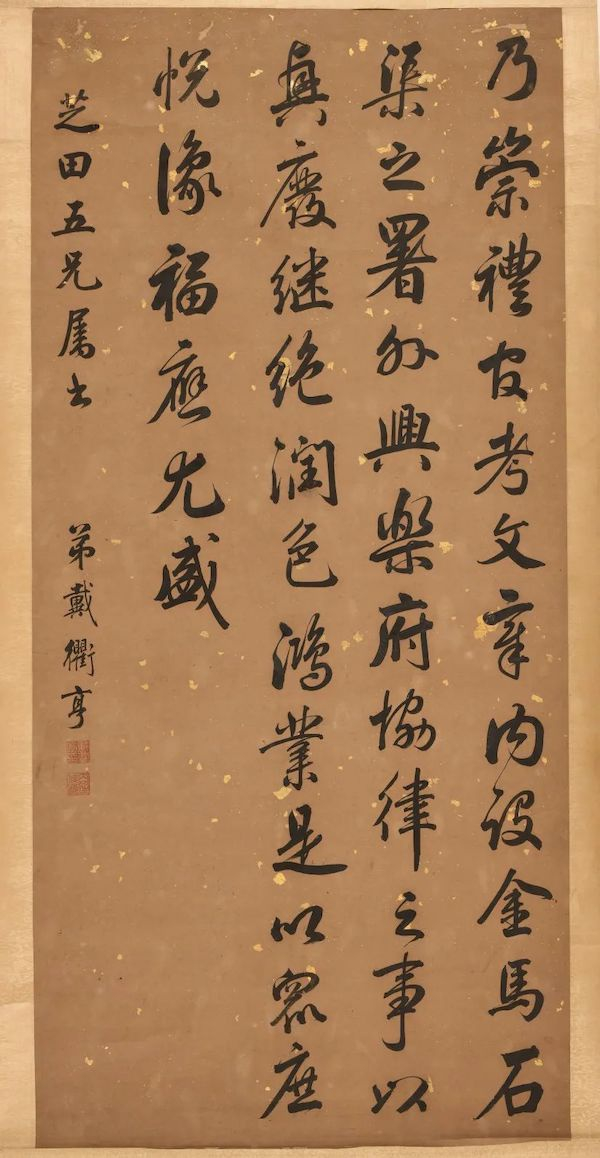 乃崇禮官考文章內設金馬石
渠之署外興樂府協律之事以
興廢继絕潤色鴻業是以眾庶
悅豫福應尤盛
芝田五兄屬書
弟戴衢亨